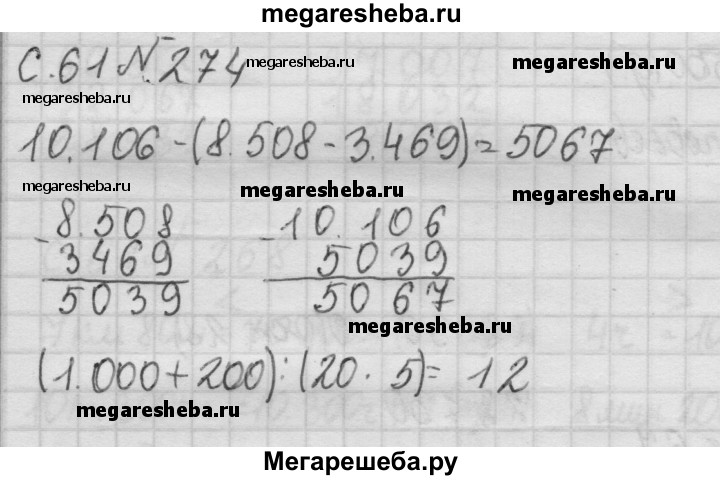 megaresheba.ru
С.61 №274 megaresheba.ru megaresheba.ru
megaresheba.ru
10.106-(8.508-3.469)=5067
megaresheba.ru megaresheba.ru megaresheba.ru
8.508 10.106
- 3469 - 5039
5039 5067
megaresheba.ru
(1.000+200):(20·5)=12
megaresheba.ru
Мегарешеба.ру